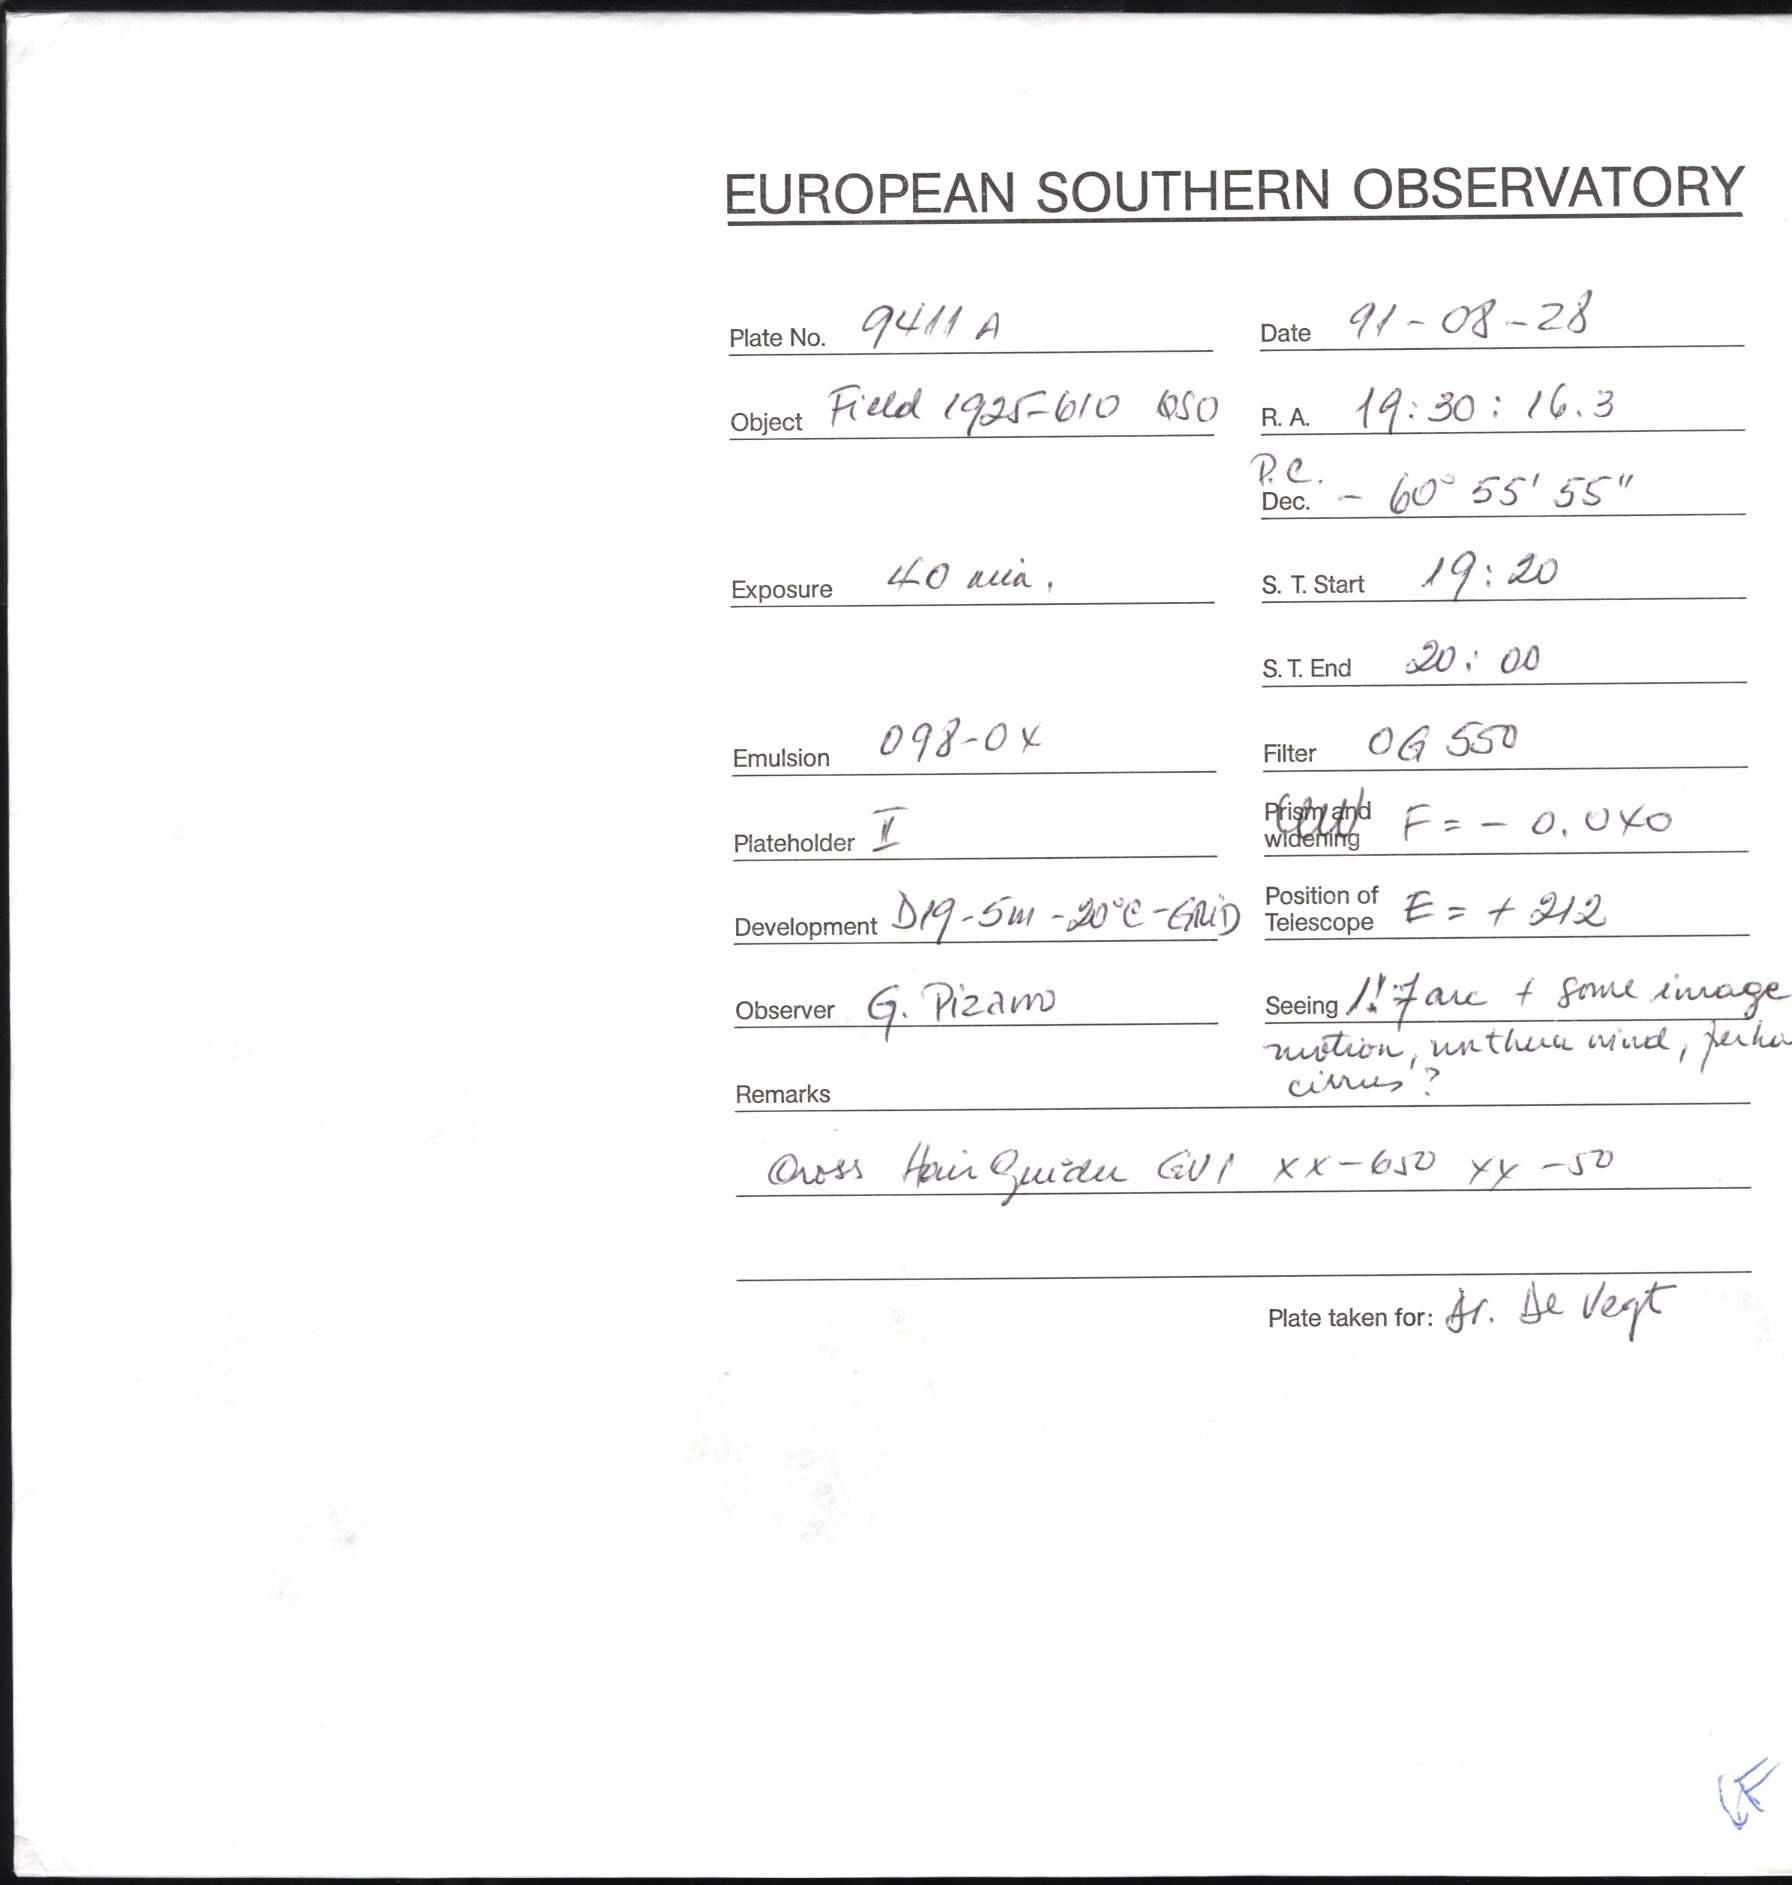 EUROPEAN SOUTHERN OBSERVATORY
Plate No. 9411 A
Date 91-08-28
Object Field 1925-610 QSO
R. A. 19:30:16.3
P.C.
Dec. - 60° 55' 55"
Exposure 40 min.
S. T. Start 19:20
S. T. End 20:00
Emulsion 098-04
Filter OG 550
Plateholder II
Prism and widening F = - 0.040
Development D19-5m-20°C-GRID
Position of Telescope E = + 212
Observer G. Pizarro
Seeing 1".7 arc + some image
motion, northern wind, perha
cirrus?
Remarks
Cross Hair Guider GV1 XX-650 XY-50
Plate taken for: Dr. De Vegt